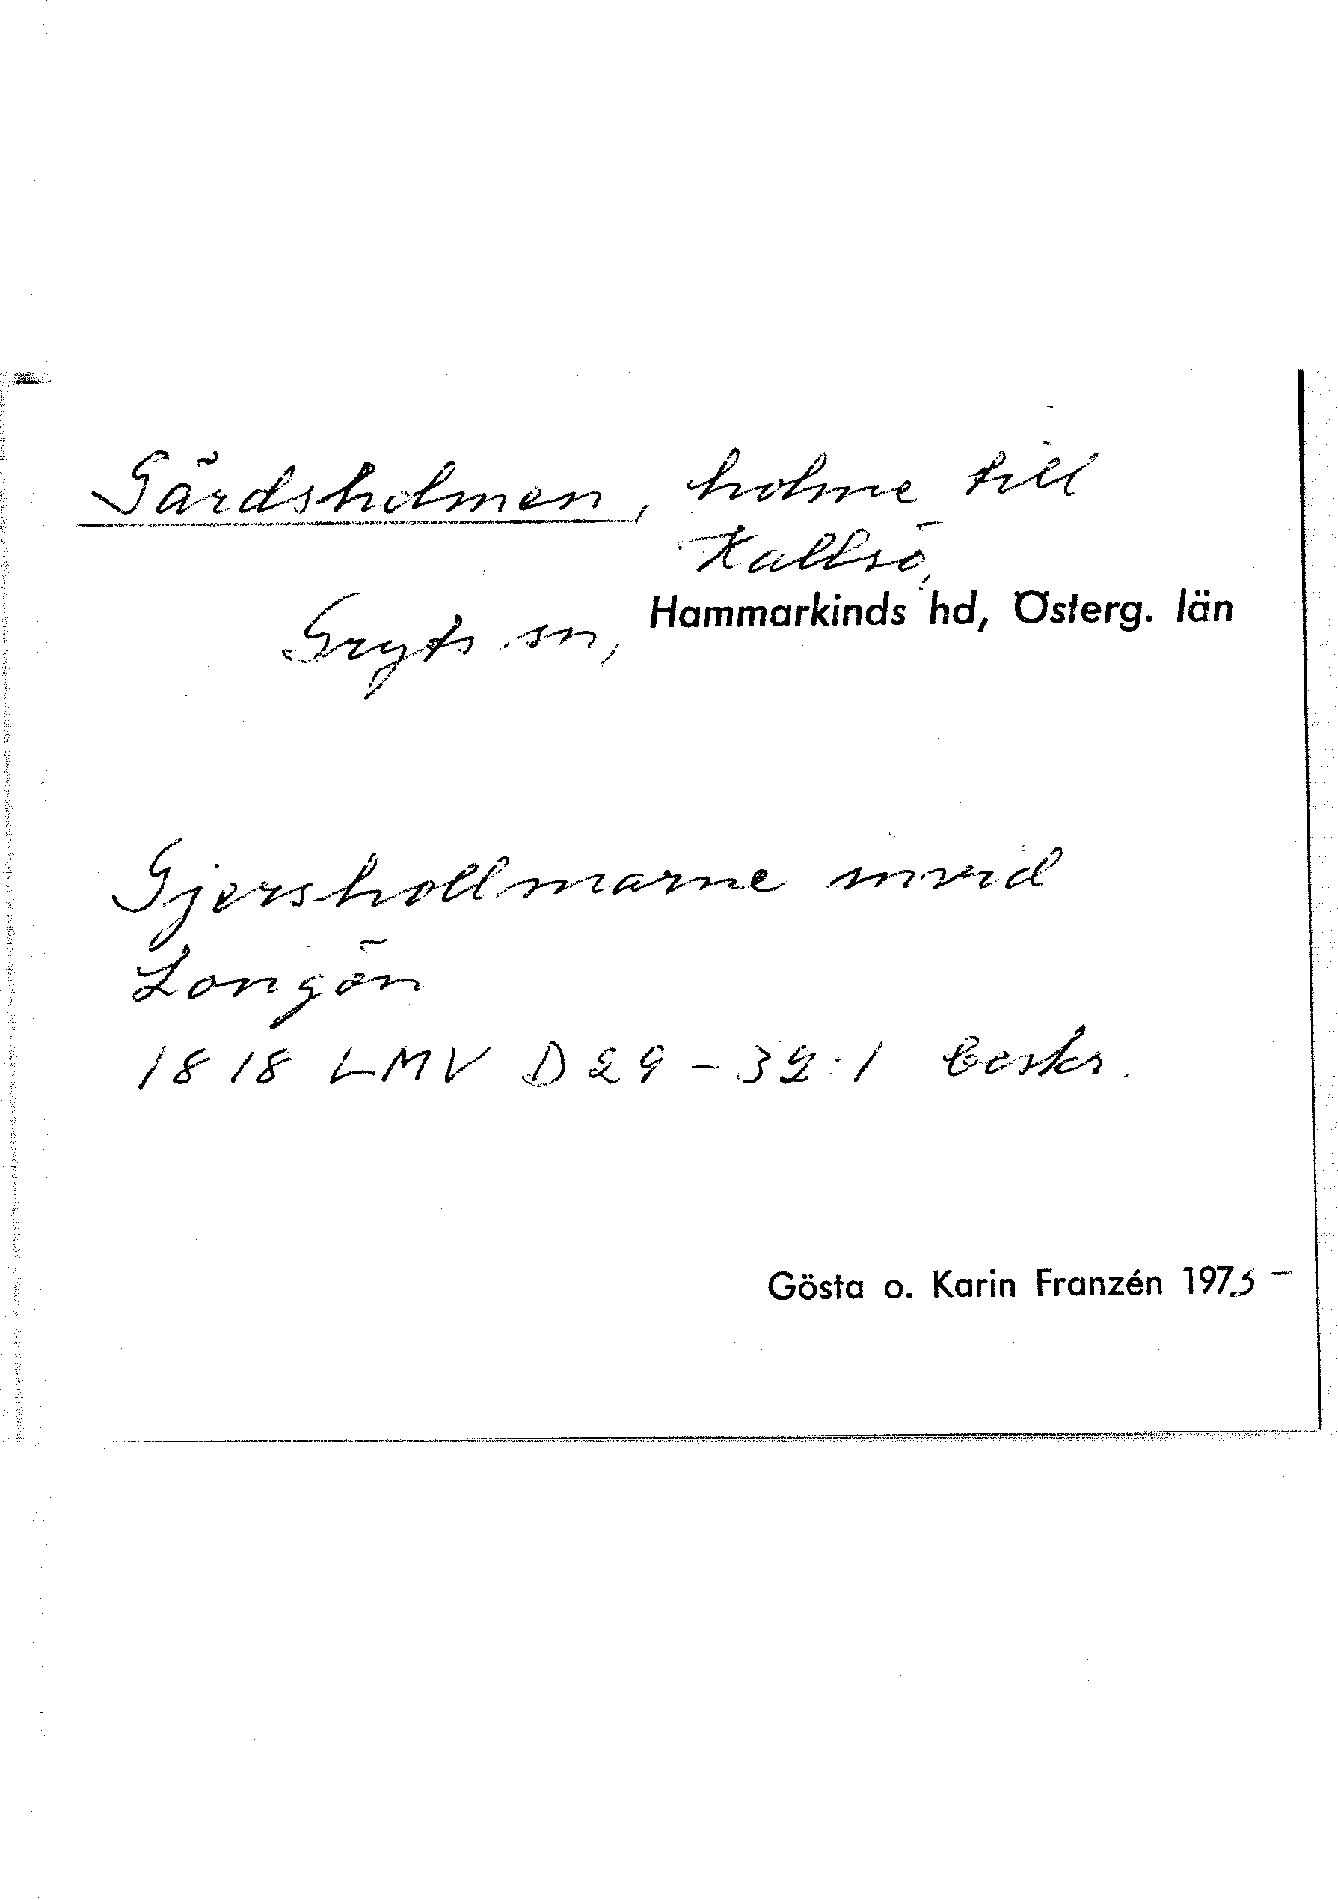 Gärdsholmen, holme till
Kallsö,
Gryts sn, Hammarkinds hd, Österg. län
Gjershollmarne invid
Longön
1818 LMV D29-32:1 beskr.
Gösta o. Karin Franzén 1975 -